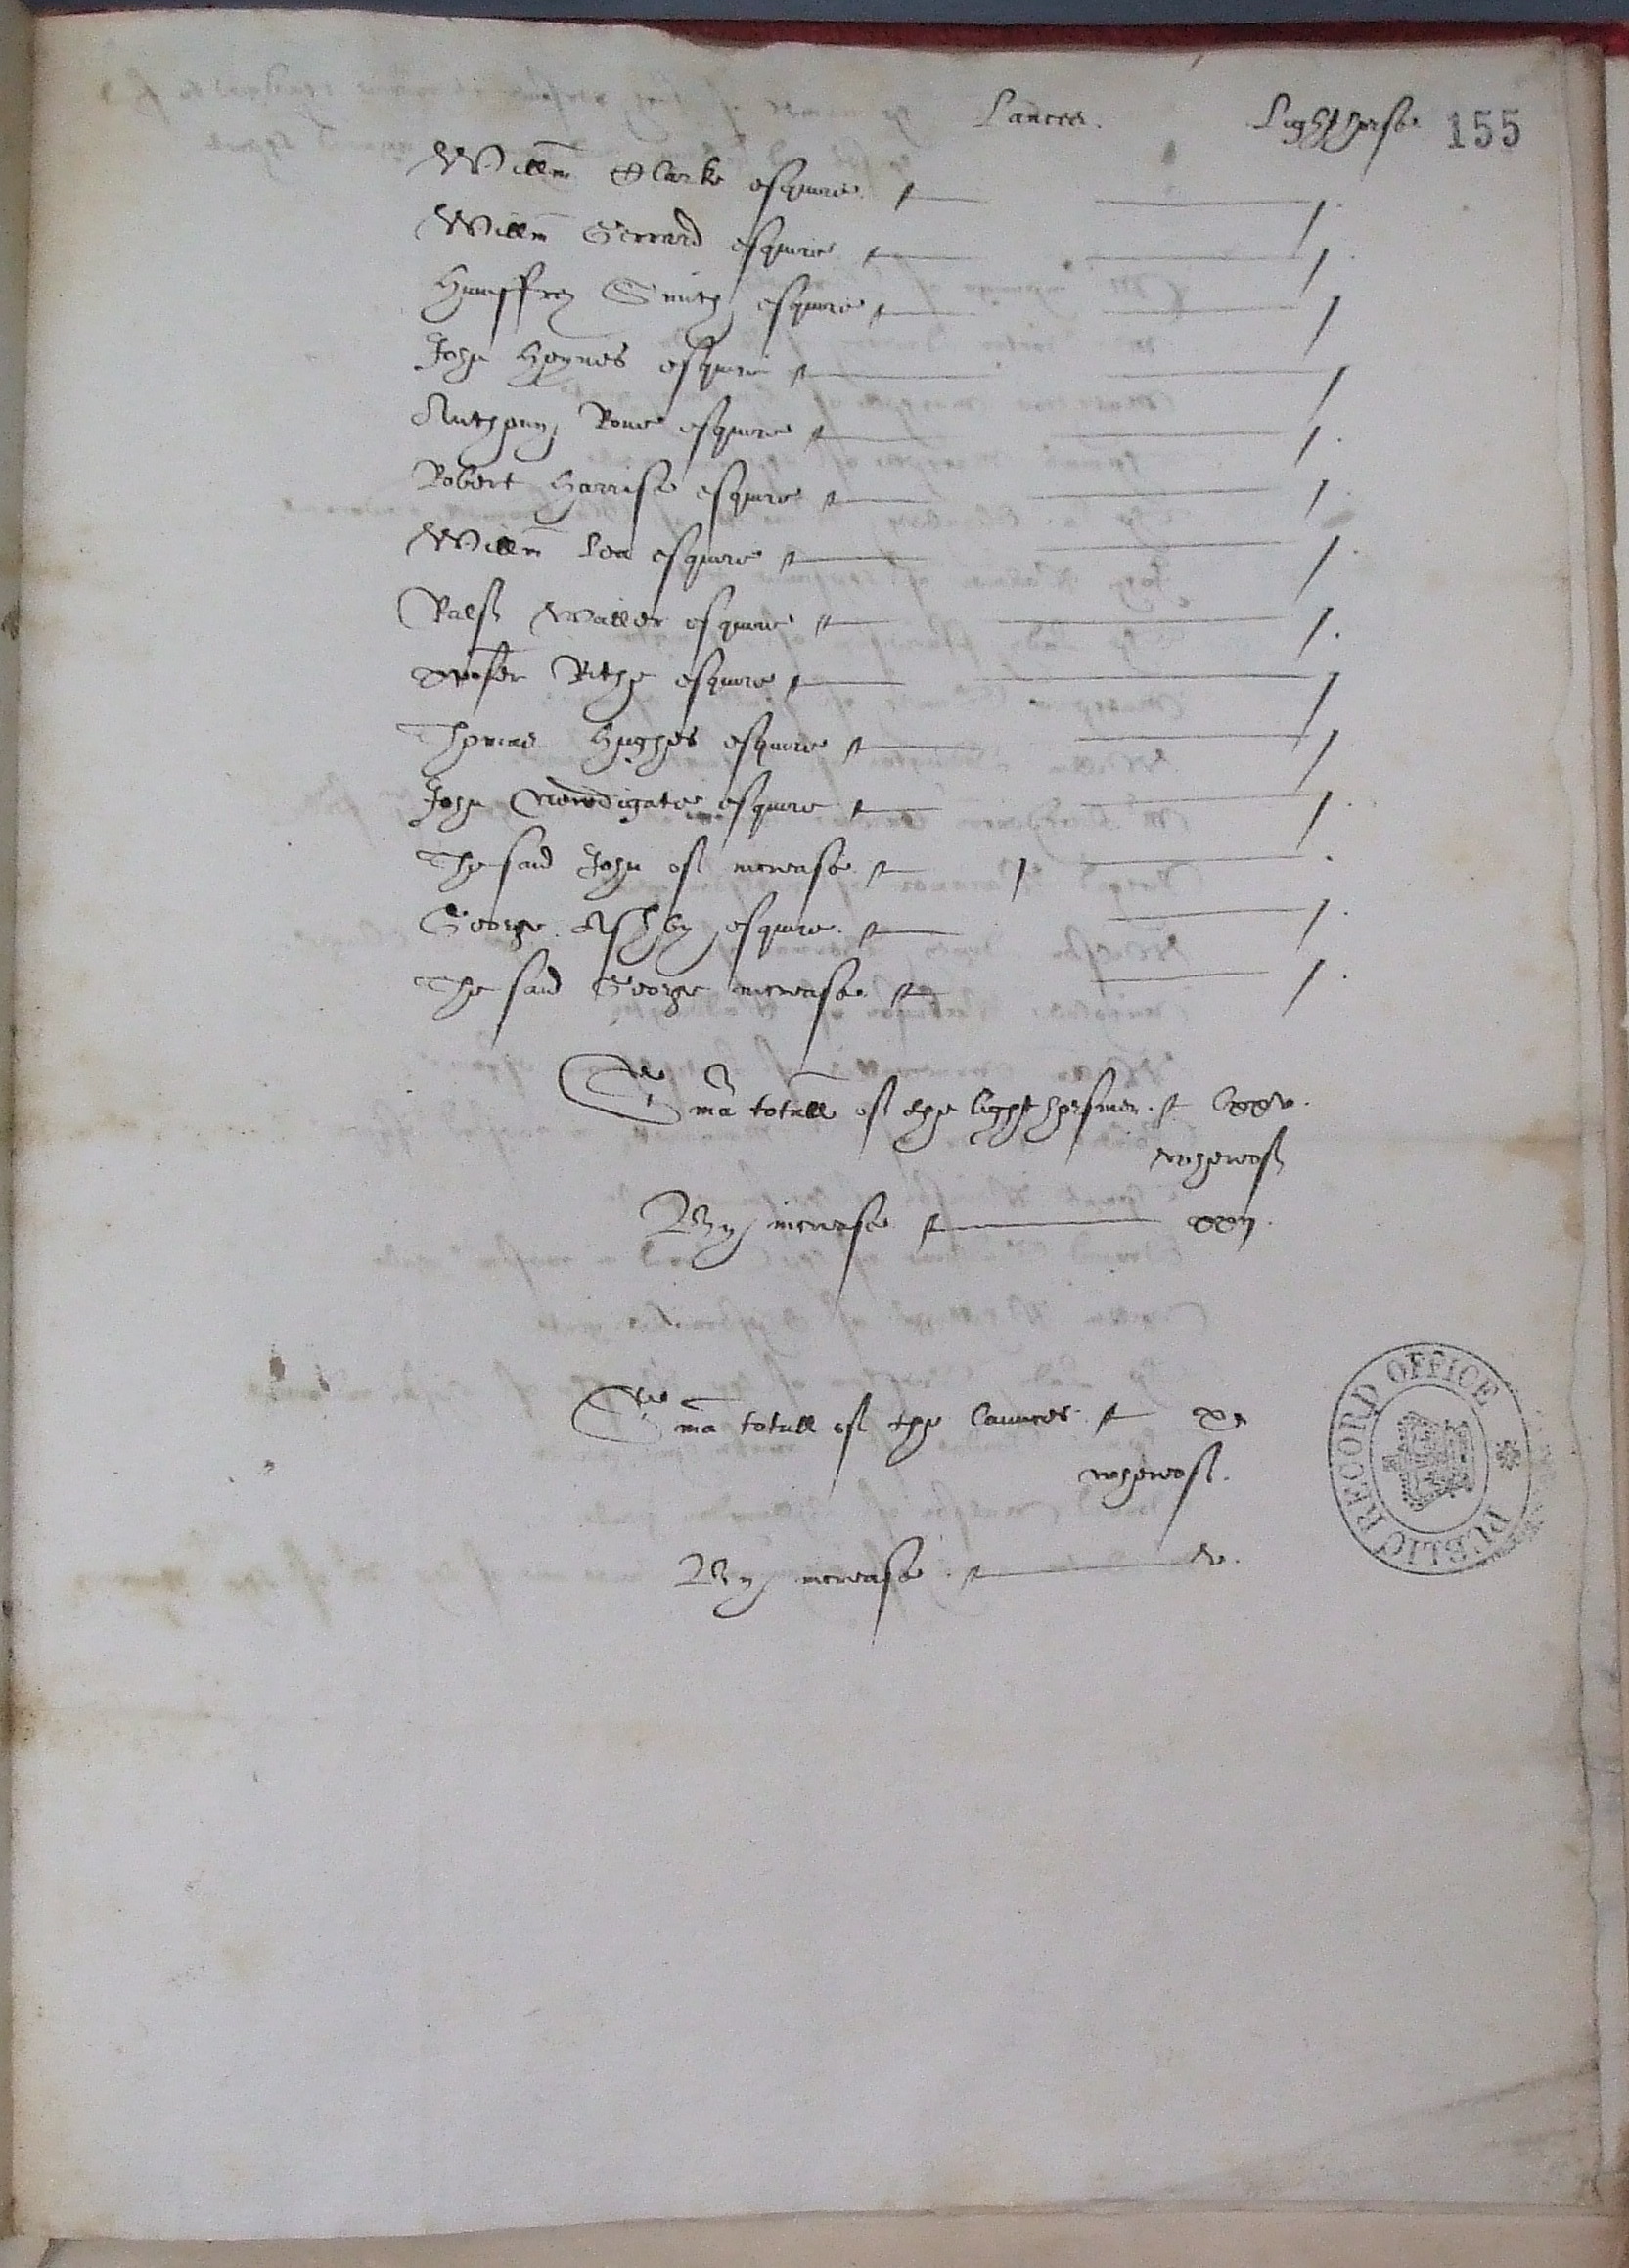 Lances. Light horse 155
Willm Clarke esquire 1.
Willm Gerrard esquire 1.
Humffrey Smith esquire 1
John Heynes esquire 1
Anthony Rone esquire 1.
Robert Harrise esquire 1.
Willm Lea esquire 1.
Ralf Waller esquire 1.
Rithe esquire 1
Thomas Hughes esquire 1
John Newdigate esquire 1.
The said John of increase 1
George Ashby esquire 1.
The said George increase 1.
Sma totall of the light horsmen lxxv.
wherof
By increase xxij.
Sma totall of the launces x
wherof.
By increase v.
PUBLIC RECORD OFFICE